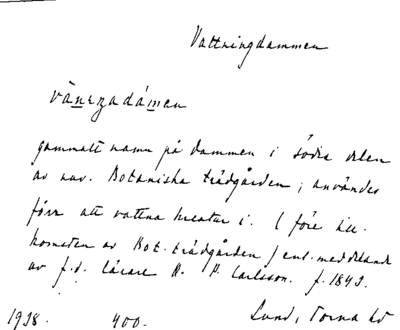 Vattningdammen
gammalt namn på dammen i södra delen
av nuv. Botaniska trädgården; användes
förr att vattna kreatur i. (före till-
komsten av Bot. trädgården / enl. meddeland
av f.d. lärare P. Carlsson. f. 1843.
1938. 400. Lund, Torna hd